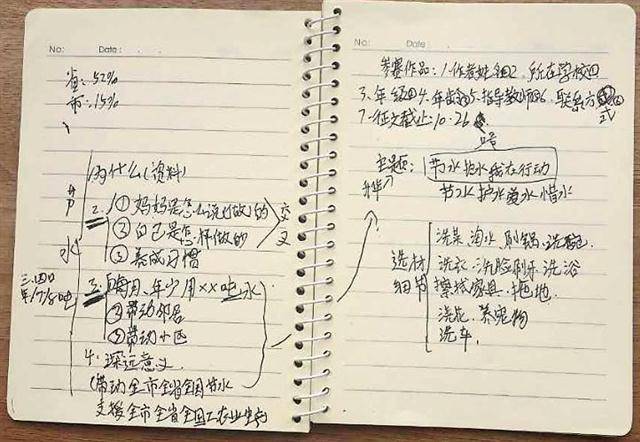 No: Date:
省:52%
市:15%
为什么(资料)
节
水
2. ①妈妈是怎么说(做)的
②自己是怎样做的
③养成习惯
交
叉
三.四口
3. ①每月、年少用××吨水
②带动邻居
③带动小区
4. 深远意义
(带动全市全省全国节水
支援全市全省全国工农业生产
No: Date:
参赛作品:1.作者姓名 2.所在学校
3.年级 4.年龄 5.指导教师 6.联系方
式
7.征文截止:10.26
主题:
节水护水我在行动
节水护水爱水惜水
选材
细节
洗菜 淘米 刷锅.洗碗.
洗衣.洗脸刷牙.洗浴
擦拭家具.拖地.
浇花.养宠物
洗车.